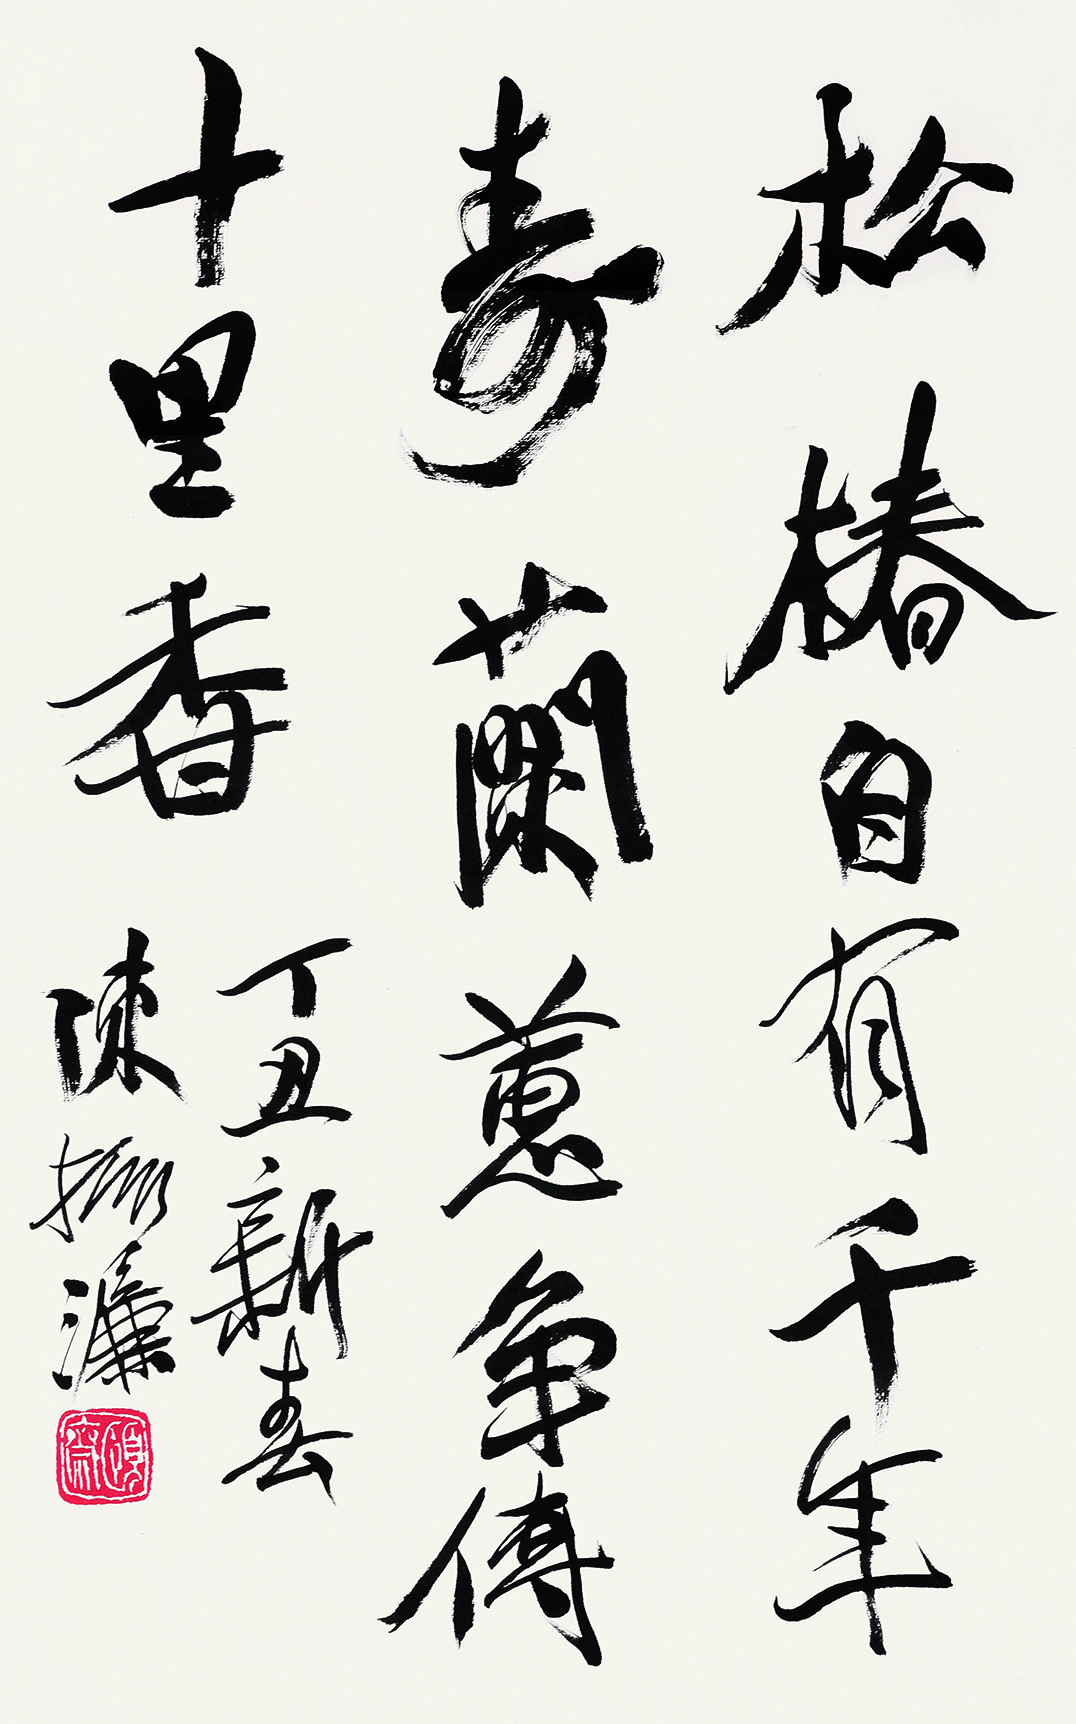 松椿自有千年
壽蘭蕙争傳
十里香
丁丑新春
陳振濂